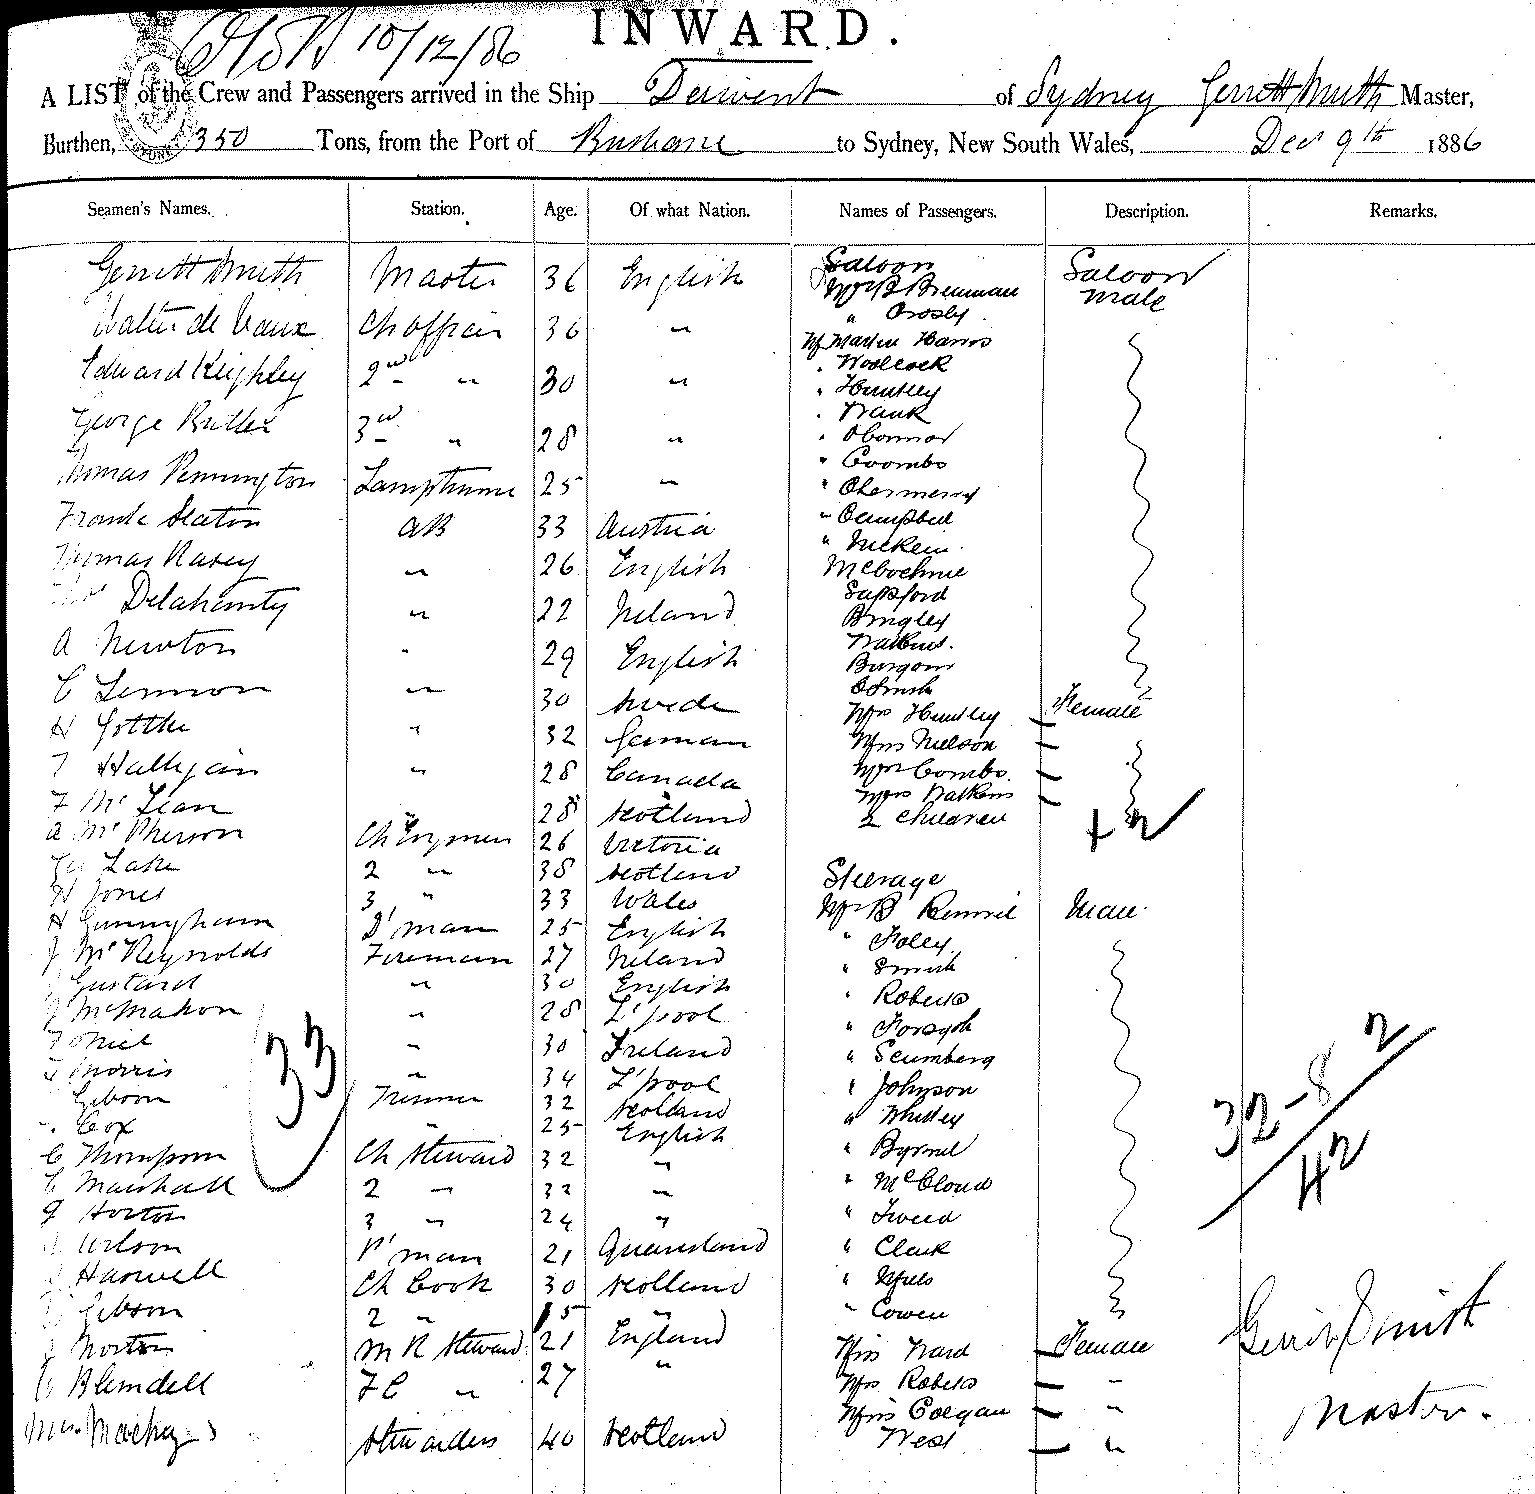 INWARD.
10/12/86
A LIST of the Crew and Passengers arrived in the Ship Derwent of Sydney Gerrett Smith Master,
Burthen, 1350 Tons, from the Port of Brisbane to Sydney, New South Wales, Dec 9th 1886
Seamen's Names. Station. Age. Of what Nation. Names of Passengers. Description. Remarks.
Gerrett Smith Master 36 English
Walter de Vaux Ch Officer 36 "
Edward Keighley 2nd " 30 "
George Butler 3rd " 28 "
Thomas Pennington Lamptrimr 25 "
Frank Seaton AB 33 Austria
Thomas Rasey " 26 English
Delahunty " 22 Ireland
A Newton " 29 English
C Lennon " 30 Swede
H Gottke " 32 German
T Halligan " 28 Canada
F McLean " 28 Scotland
A McPherson Ch Engineer 26 Victoria
Lake 2 " 38 Scotland
H Jones 3 " 33 Wales
H Gunningham D'man 25 English
J McReynolds Fireman 27 Ireland
Gustard " 30 English
J McMahon " 28 L'pool
T ONiel " 30 Ireland
Morris " 34 L'pool
Gibson Trimmer 32 Scotland
Cox " 25 English
C Thompson Ch Steward 32 "
C Marshall 2 " 32 "
G Horton 3 " 24 "
Wilson P'man 21 Queensland
Harwell Ch Cook 30 Scotland
Gibson 2 " 15 "
Norton M R Steward 21 England
Blundell F C " 27 "
Mrs. Mackay Stewardess 40 Scotland
33
Saloon Saloon
Mr B Brennan Male
" Crosby
Harris
" Woolcock
" Huntley
" Frank
" Oconnor
" Coombs
" Campbell
" McKein
Sapsford
Bingley
Watkins.
Burgom
Mrs Huntley Female
Miss Nielson
Mrs Combs.
Mrs Watkins
2 Children + 2
Steerage
Mr B Rennie Male
" Foley
" Smith
" Roberts
" Forsyth
" Scumberg
" Johnson
" Whitley
" Byrne
" McCloud
" Tweed
" Clark
" Cowen
Miss Ward Female
Mrs Roberts "
Miss Coegan "
West "
32 - 8 2
42
Gerrit Smith
Master.